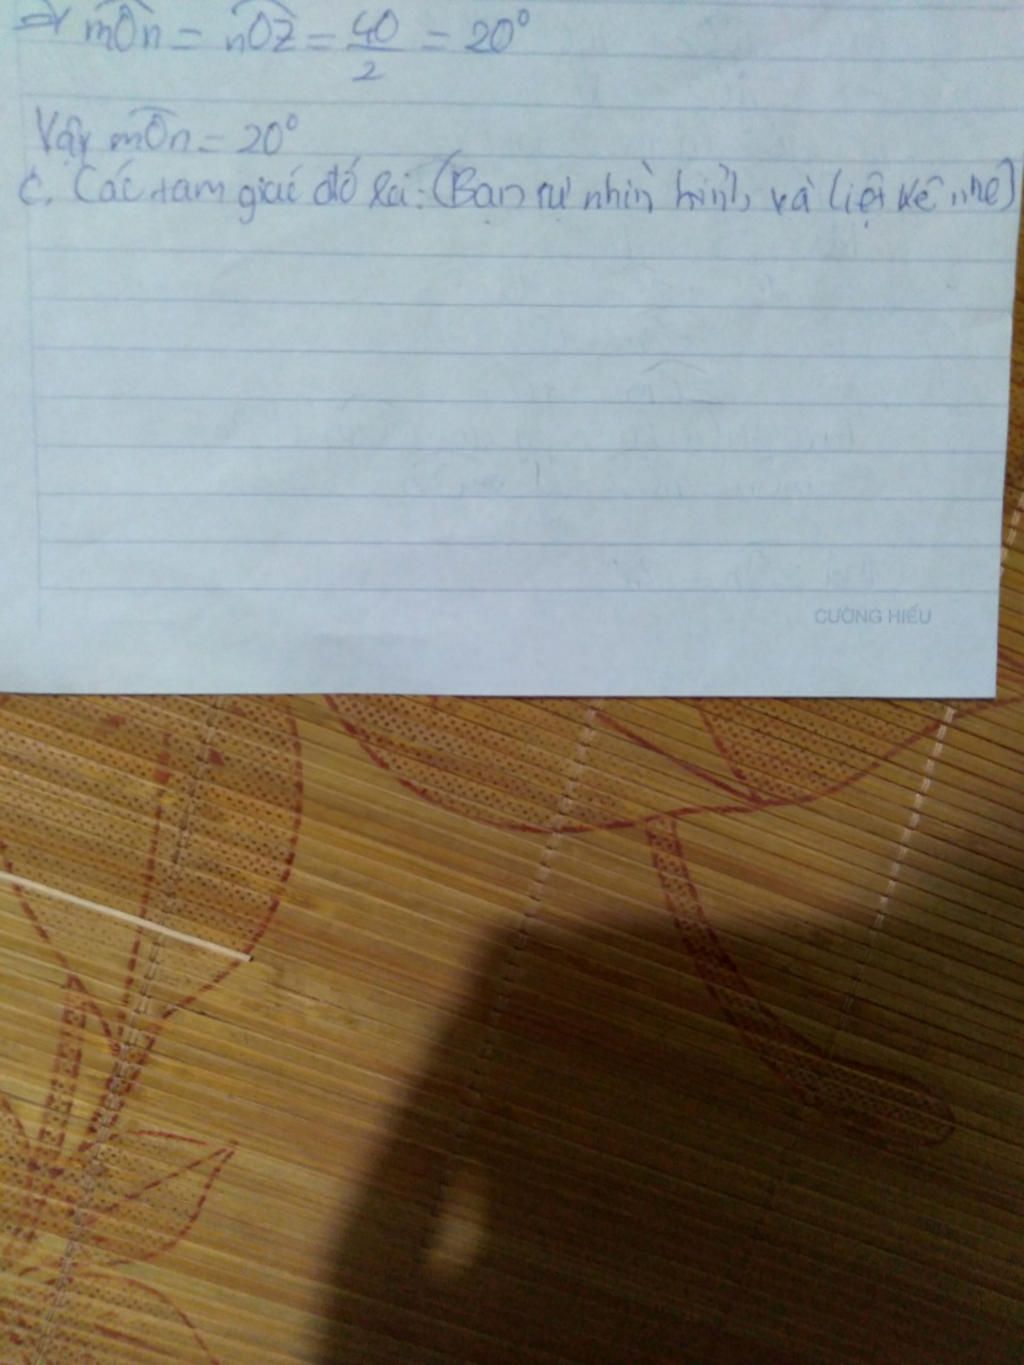 => mÔn = nÔz = 40/2 = 20°
Vậy mÔn = 20°
C. Các tam giác đó là: (Bạn tự nhìn hình và liệt kê nhé)
CƯỜNG HIẾU